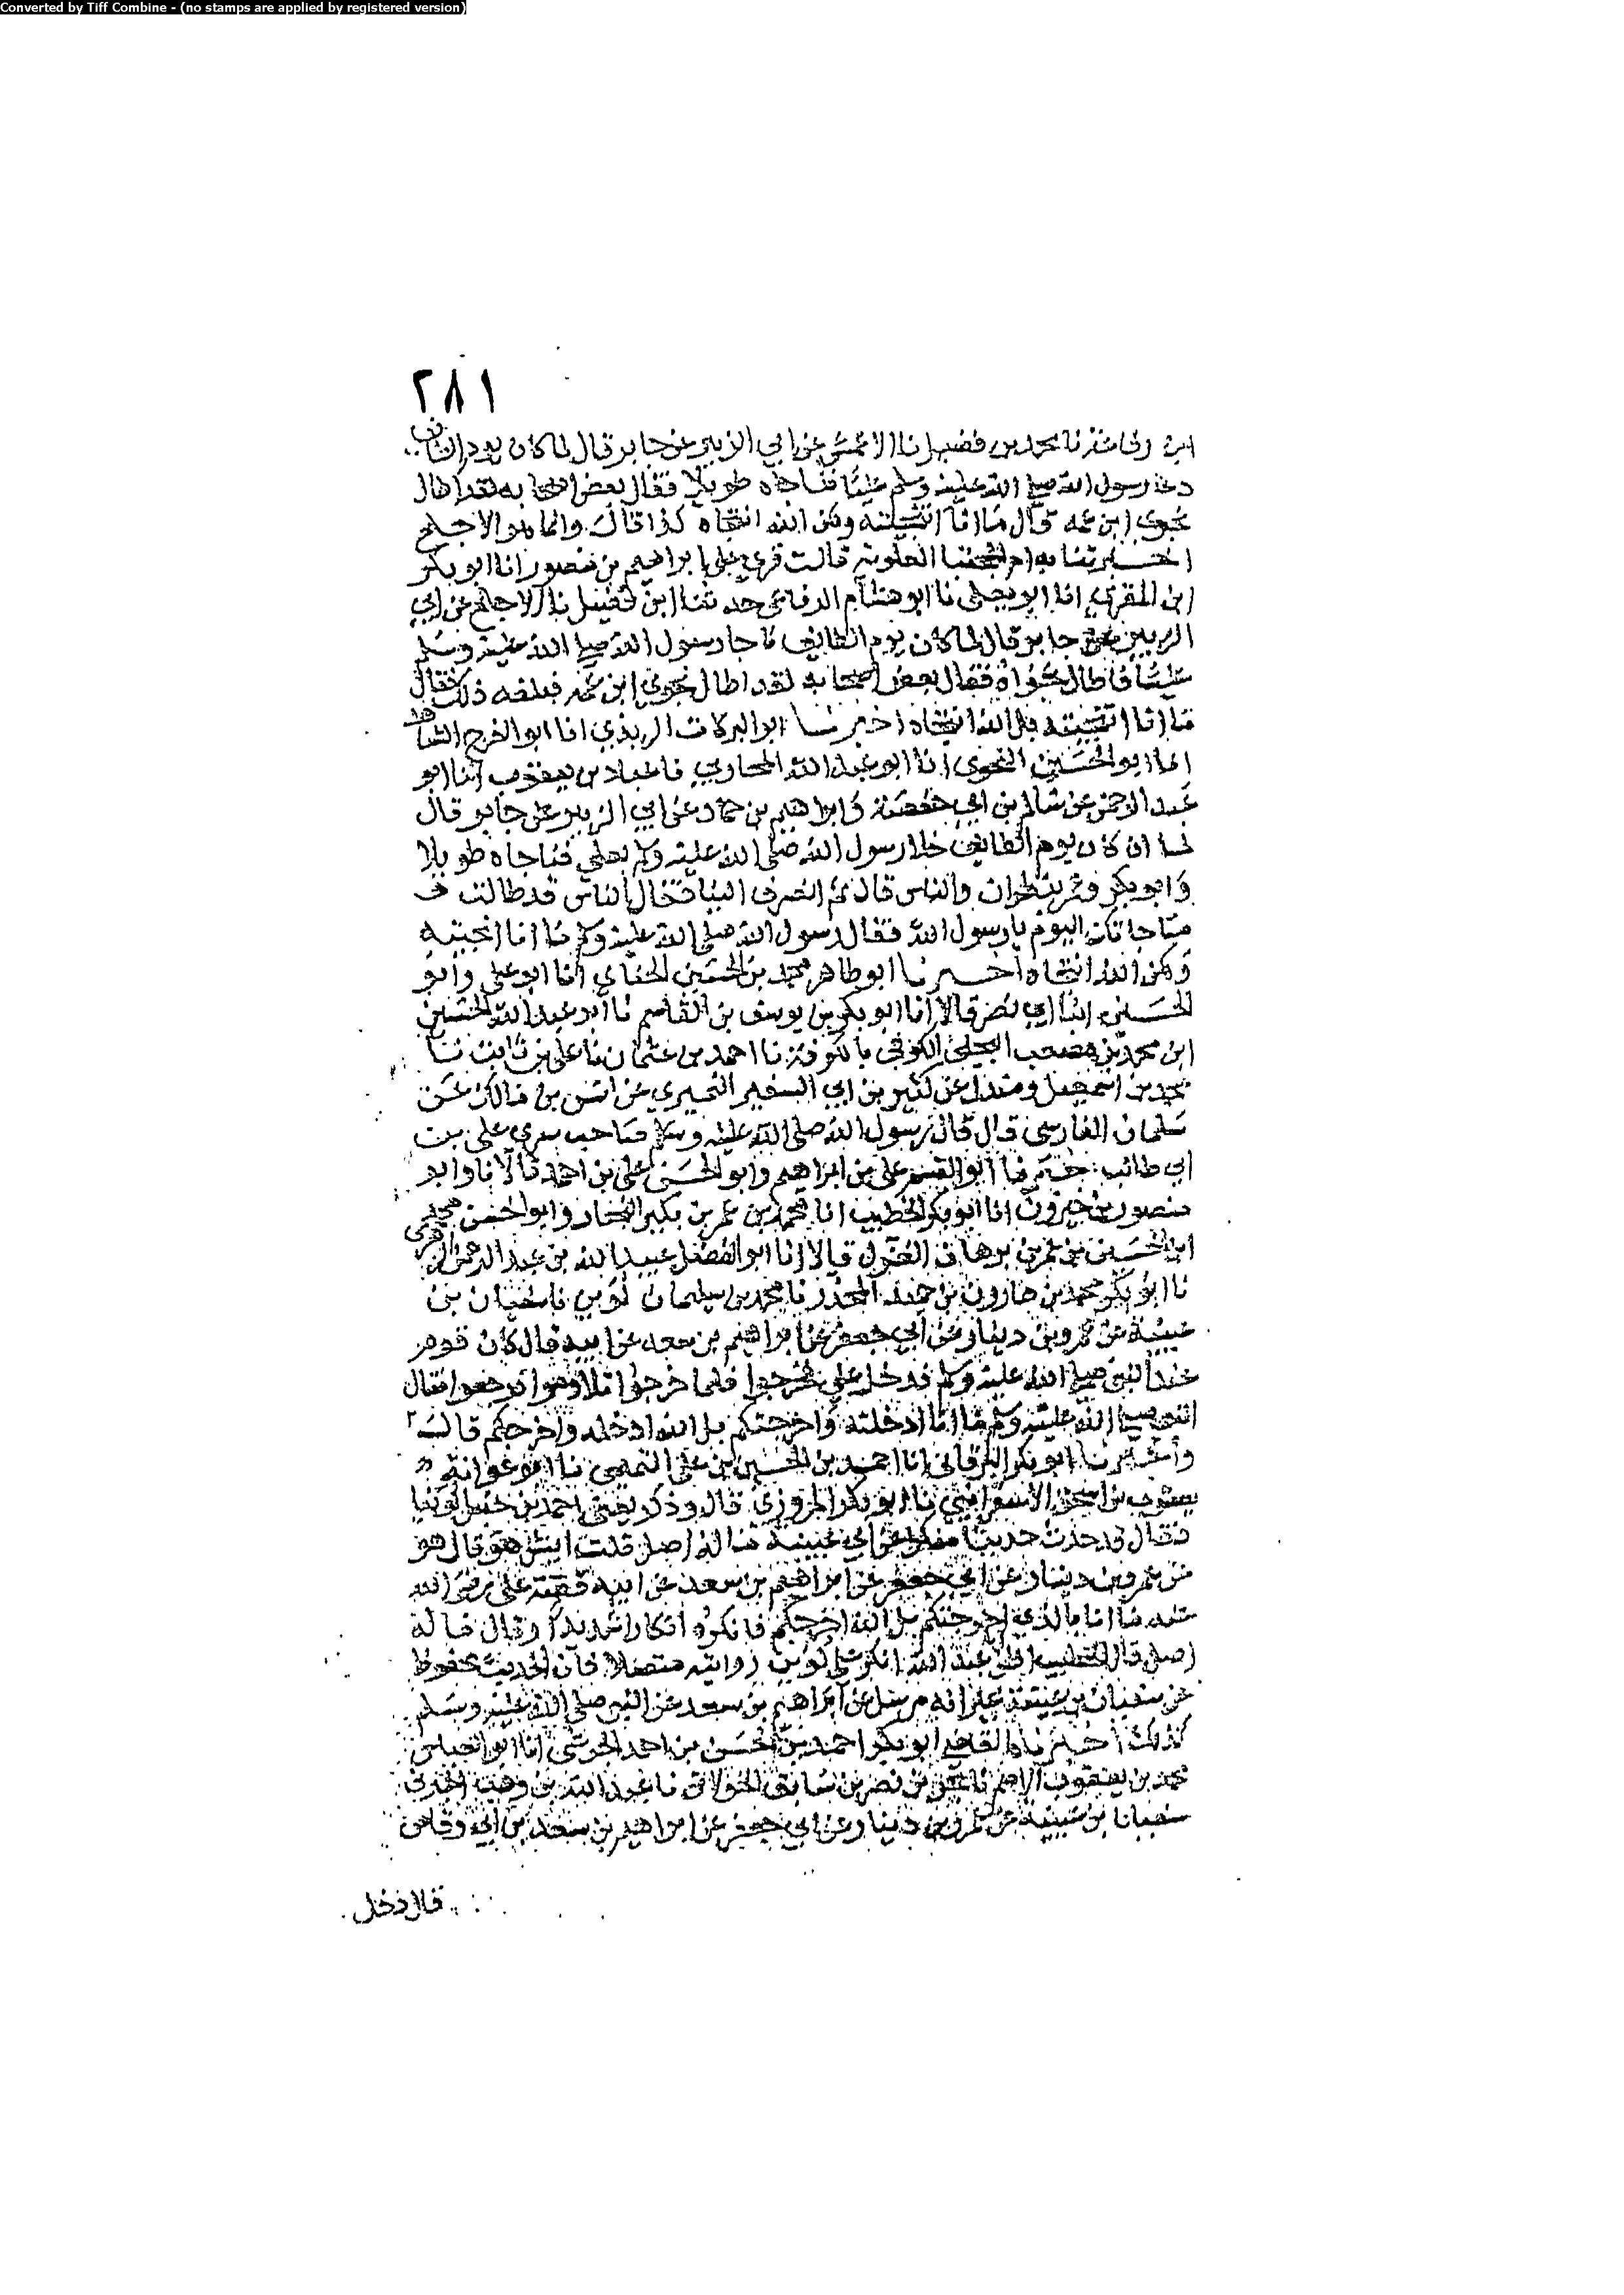 Converted by Tiff Combine - (no stamps are applied by registered version)
٢٨١
نا محمد بن فضيل نا الاعمش عن ابي الزبير عن جابر قال لما كان يوم الطائف
دعا رسول الله صلى الله عليه وسلم عليا فناجاه طويلا فقال بعض اصحابه لقد اطال
نجوى ابن عمه قال ما انا انتجيته ولكن الله انتجاه كذا قال وانما هو الاجلح
اخبرتنا به ام المجتبا العلوية قالت قري على ابراهيم بن منصور انا ابو بكر
ابن المقرى انا ابو يعلى نا ابو هشام الرفاعى حدثنا ابن فضيل نا الاجلح عن ابي
الزبير عن جابر قال لما كان يوم الطايف ناجا رسول الله صلى الله عليه وسلم
عليا فاطال نجواه فقال بعض اصحابه لقد اطال نجوى ابن عمه فبلغه ذلك فقال
ما انا انتجيته بل الله انتجاه اخبرنا ابو البركات الزيدي انا ابو الفرج الشاهد
انا ابو الحسين النحوى انا ابو عبد الله المحاربي نا عباد بن يعقوب انا ابو
عبد الرحمن عن سالم بن ابي حفصة وابراهيم بن حماد عن ابي الزبير عن جابر قال
لما ان كان يوم الطايف خلا رسول الله صلى الله عليه وسلم بعلي فناجاه طويلا
وابو بكر وعمر ينظران والناس قال ثم انصرف الينا فقال الناس قد طالت
مناجاتك اليوم يا رسول الله فقال رسول الله صلى الله عليه وسلم ما انا انتجيته
ولكن الله انتجاه اخبرنا ابو طاهر محمد بن الحسين الحنائي انا ابو علي وابو
الحسين ابنا ابي نصر قالا انا ابو بكر بن يوسف بن القاسم نا ابو عبد الله الحسين
ابن محمد بن مصعب البجلي الكوفي بالكوفة نا احمد بن عثمان نا علي بن ثابت نا
محمد بن اسمعيل ومندل عن كثير بن ابي السفير النميري عن انس بن مالك عن
سلمان الفارسي قال قال رسول الله صلى الله عليه وسلم صاحب سري علي بن
ابي طالب اخبرنا ابو القسم علي بن ابراهيم وابو الحسن علي بن احمد قالا نا وابو
منصور بن خيرون انا ابو بكر الخطيب انا محمد بن عمر بن بكير النجار وابو الحسن محمد
ابن الحسين بن عمر بن برهان الغزل قالا انا ابو الفضل عبيد الله بن عبد الرحمن الزهري
نا ابو بكر محمد بن هارون بن حميد المجدر نا محمد بن سليمان لوين نا سفيان بن
عيينة عن عمرو بن دينار عن ابي جعفر عن ابراهيم بن سعد عن ابيه قال كان قوم
عند النبي صلى الله عليه وسلم فدخل علي فخرجوا فلما خرجوا تلاوموا فرجعوا فقال
النبي صلى الله عليه وسلم ما انا ادخلته واخرجتكم بل الله ادخله واخرجكم قال
واخبرنا ابو بكر البرقاني انا احمد بن الحسين بن علي التميمي نا ابو عوانة
يعقوب بن اسحق الاسفرائيني نا ابو بكر المروزي قال وذكر يعنى احمد بن حنبل لوينا
فقال قد حدث حديثا منكرا عن ابن عيينة ما له اصل قلت ايش هو قال هو
عن عمرو بن دينار عن ابي جعفر عن ابراهيم بن سعد عن ابيه قصة علي رضى الله
عنه ما انا بالذي اخرجتكم بل الله اخرجكم فانكره انكارا شديدا وقال ما له
اصل قال الخطيب ابو عبد الله انكر على لوين روايته متصلا فان الحديث محفوظ
عن سفيان بن عيينة غير انه مرسل عن ابراهيم بن سعد عن النبي صلى الله عليه وسلم
كذلك اخبرناه القاضي ابو بكر احمد بن الحسن بن احمد الحرشي انا ابو العباس
محمد بن يعقوب الاصم نا بحر بن نصر بن سابق الخولاني نا عبد الله بن وهب اخبرني
سفيان بن عيينة عن عمرو بن دينار عن ابي جعفر عن ابراهيم بن سعد بن ابي وقاص
قال دخل